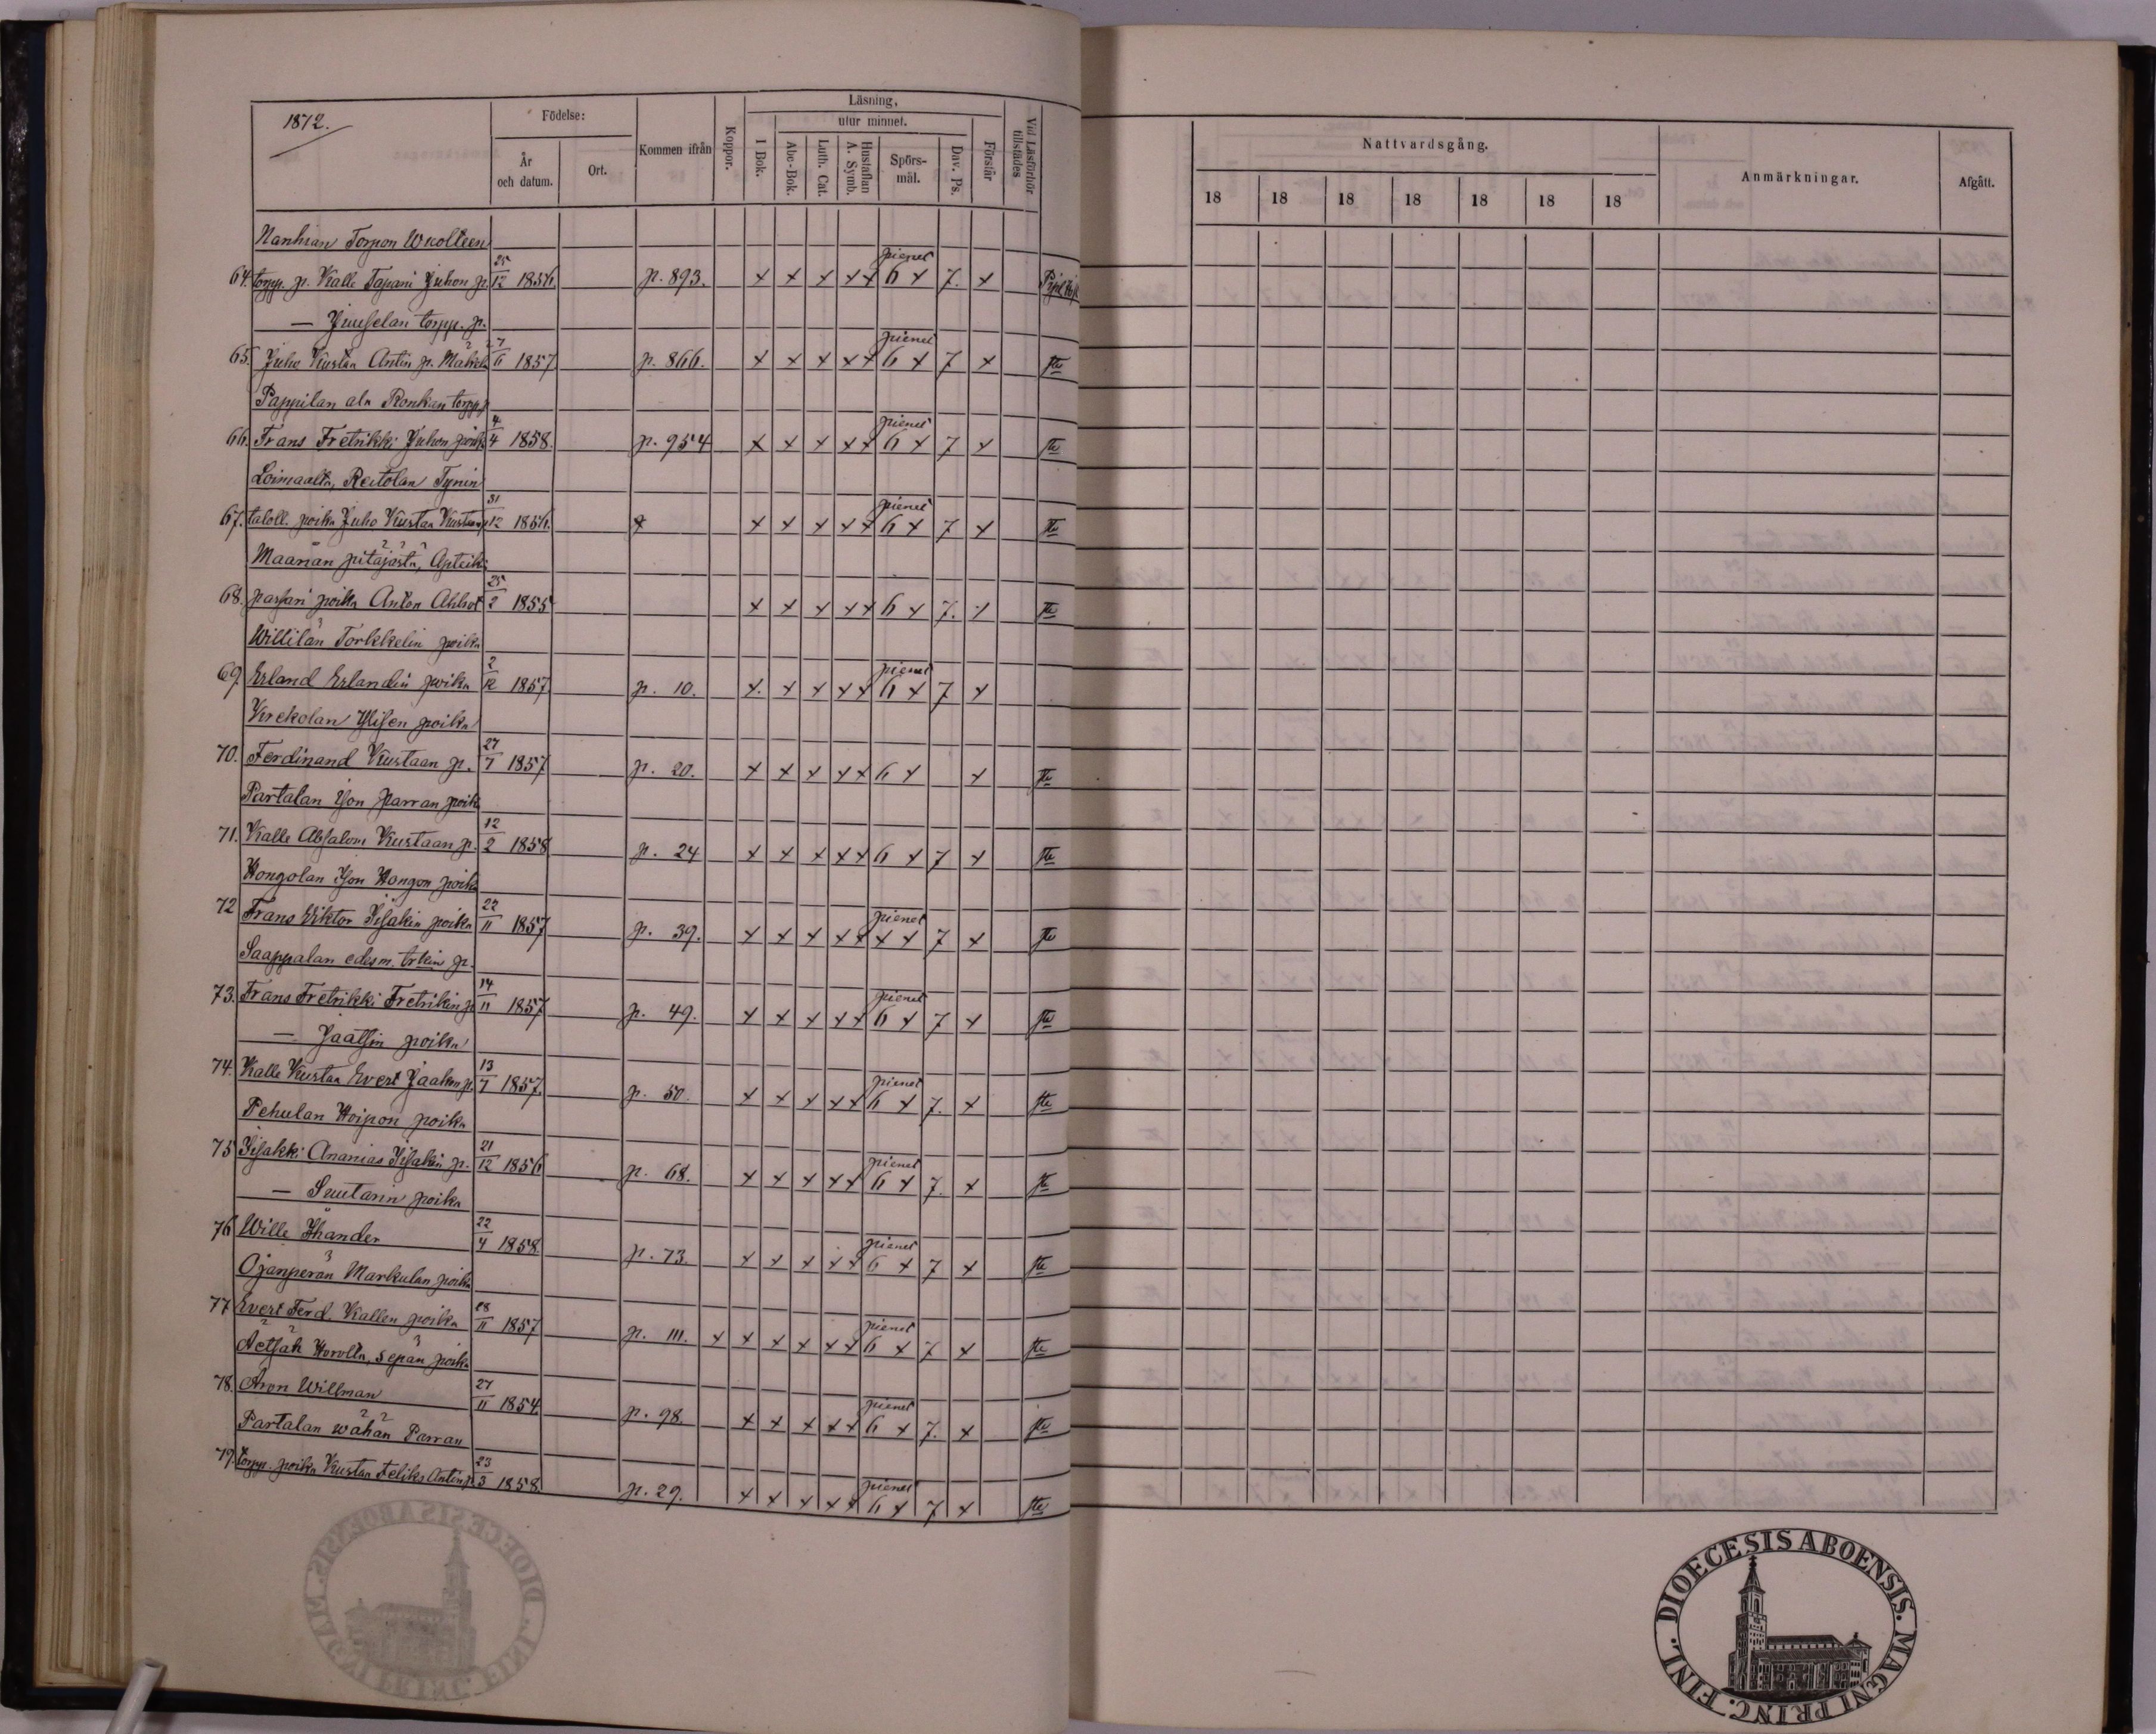 1872.
Födelse:
År och datum.
Ort.
Kommen ifrån
Koppor.
Läsning,
utur minnet.
I Bok.
Abc-Bok.
Luth. Cat.
Hustaflan A. Symb.
Spörs-mål.
Dav. Ps.
Förstår
Vid Läsförhör tillstädes
Nattvardsgång.
18 18 18 18 18 18 18
Anmärkningar.
Afgått.
Nanhian Torpon Wuolteen
64. torpp. p. Kalle Tapani Juhon p. 25/12 1856. p. 893. x x x x x pienet 6 x 7. x
— Juuselan torpp. p.
65. Juho Kustaa Antin p. Mäkelä 27/6 1857 p. 866. x x x x x pienet 6 x 7 x
Pappilan ala Ronkan torpp. p
66. Frans Fretrikki Juhon poika 4/4 1858. p. 954 x x x x x pienet 6 x 7 x
Loimaalta, Reitolan Tynin
67. taloll. poika Juho Kustaa Kustaan p 31/12 1856. x x x x x pienet 6 x 7 x
Maarian pitäjästä, Apteik
68. passari poika Anton 25/2 1855 x x x x x 6 x 7. x
Willilän Torkkelin poika
69. Erland Erlandin poika 2/12 1857 p. 10. x. x x x x pienet 6 x 7 x
Krekolan Ylisen poika
70. Ferdinand Kustaan p. 27/7 1857 p. 20. x x x x x 6 x x
Partalan Ison Parran poika
71. Kalle Absalom Kustaan p. 12/2 1858 p. 24 x x x x x 6 x 7 x
Hongolan Ison Hongon poika
72 Frans Viktor Iisakin poika 22/11 1857 p. 39. x x x x x pienet x x 7 x
Saappalan edesm. trkin p.
73. Frans Fretrikki Fretrikin p 14/11 1857 p. 49. x x x x x pienet 6 x 7 x
— Jaatsin poika
74. Kalle Kustaa Evert Jaakon p. 13/7 1857. p. 50. x x x x x pienet 6 x 7. x
Pehulan Hoipon poika
75 Iisakki Ananias Iisakin p. 21/12 1856 p. 68. x x x x x pienet 6 x 7. x
— Suutarin poika
76 Wille Ihander 22/4 1858. p. 73. x x x x x pienet 6 x 7 x
Ojanperän Markulan poika
77 Evert Ferd. Kallen poika 28/11 1857 p. 111. x x x x x x pienet 6 x 7 x
Äetsäh sepän poika
78. Aron Willman 27/11 1854 p. 98. x x x x x pienet 6 x 7. x
Partalan wähän Parran
79. torpp. poika Kustaa Feliks Antin p. 23/3 1858. p. 29. x x x x x pienet 6 x 7 x
DIOECESIS ABOENSIS. MAGNI PRINC. FINL.